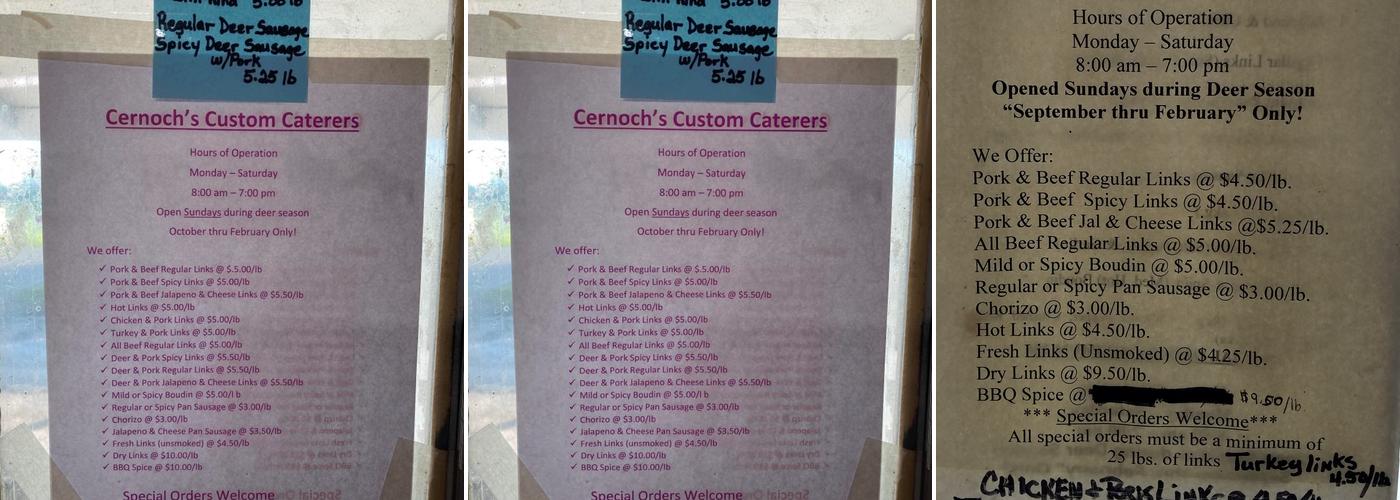 5.00 lb
Regular Deer Sausage
Spicy Deer Sausage
w/Pork
5.25 lb
Cernoch's Custom Caterers
Hours of Operation
Monday – Saturday
8:00 am – 7:00 pm
Open Sundays during deer season
October thru February Only!
We offer:
✓ Pork & Beef Regular Links @ $.5.00/lb
✓ Pork & Beef Spicy Links @ $5.00/lb
✓ Pork & Beef Jalapeno & Cheese Links @ $5.50/lb
✓ Hot Links @ $5.00/lb
✓ Chicken & Pork Links @ $5.00/lb
✓ Turkey & Pork Links @ $5.00/lb
✓ All Beef Regular Links @ $5.00/lb
✓ Deer & Pork Spicy Links @ $5.50/lb
✓ Deer & Pork Regular Links @ $5.50/lb
✓ Deer & Pork Jalapeno & Cheese Links @ $5.50/lb
✓ Mild or Spicy Boudin @ $5.00/l b
✓ Regular or Spicy Pan Sausage @ $3.00/lb
✓ Chorizo @ $3.00/lb
✓ Jalapeno & Cheese Pan Sausage @ $3.50/lb
✓ Fresh Links (unsmoked) @ $4.50/lb
✓ Dry Links @ $10.00/lb
✓ BBQ Spice @ $10.00/lb
Special Orders Welcome
5.00 lb
Regular Deer Sausage
Spicy Deer Sausage
w/Pork
5.25 lb
Cernoch's Custom Caterers
Hours of Operation
Monday – Saturday
8:00 am – 7:00 pm
Open Sundays during deer season
October thru February Only!
We offer:
✓ Pork & Beef Regular Links @ $.5.00/lb
✓ Pork & Beef Spicy Links @ $5.00/lb
✓ Pork & Beef Jalapeno & Cheese Links @ $5.50/lb
✓ Hot Links @ $5.00/lb
✓ Chicken & Pork Links @ $5.00/lb
✓ Turkey & Pork Links @ $5.00/lb
✓ All Beef Regular Links @ $5.00/lb
✓ Deer & Pork Spicy Links @ $5.50/lb
✓ Deer & Pork Regular Links @ $5.50/lb
✓ Deer & Pork Jalapeno & Cheese Links @ $5.50/lb
✓ Mild or Spicy Boudin @ $5.00/l b
✓ Regular or Spicy Pan Sausage @ $3.00/lb
✓ Chorizo @ $3.00/lb
✓ Jalapeno & Cheese Pan Sausage @ $3.50/lb
✓ Fresh Links (unsmoked) @ $4.50/lb
✓ Dry Links @ $10.00/lb
✓ BBQ Spice @ $10.00/lb
Special Orders Welcome
Hours of Operation
Monday – Saturday
8:00 am – 7:00 pm
Opened Sundays during Deer Season
“September thru February” Only!
We Offer:
Pork & Beef Regular Links @ $4.50/lb.
Pork & Beef Spicy Links @ $4.50/lb.
Pork & Beef Jal & Cheese Links @$5.25/lb.
All Beef Regular Links @ $5.00/lb.
Mild or Spicy Boudin @ $5.00/lb.
Regular or Spicy Pan Sausage @ $3.00/lb.
Chorizo @ $3.00/lb.
Hot Links @ $4.50/lb.
Fresh Links (Unsmoked) @ $4.25/lb.
Dry Links @ $9.50/lb.
BBQ Spice @ $9.50/lb
*** Special Orders Welcome***
All special orders must be a minimum of
25 lbs. of links Turkey links
4.50/lb
CHICKEN